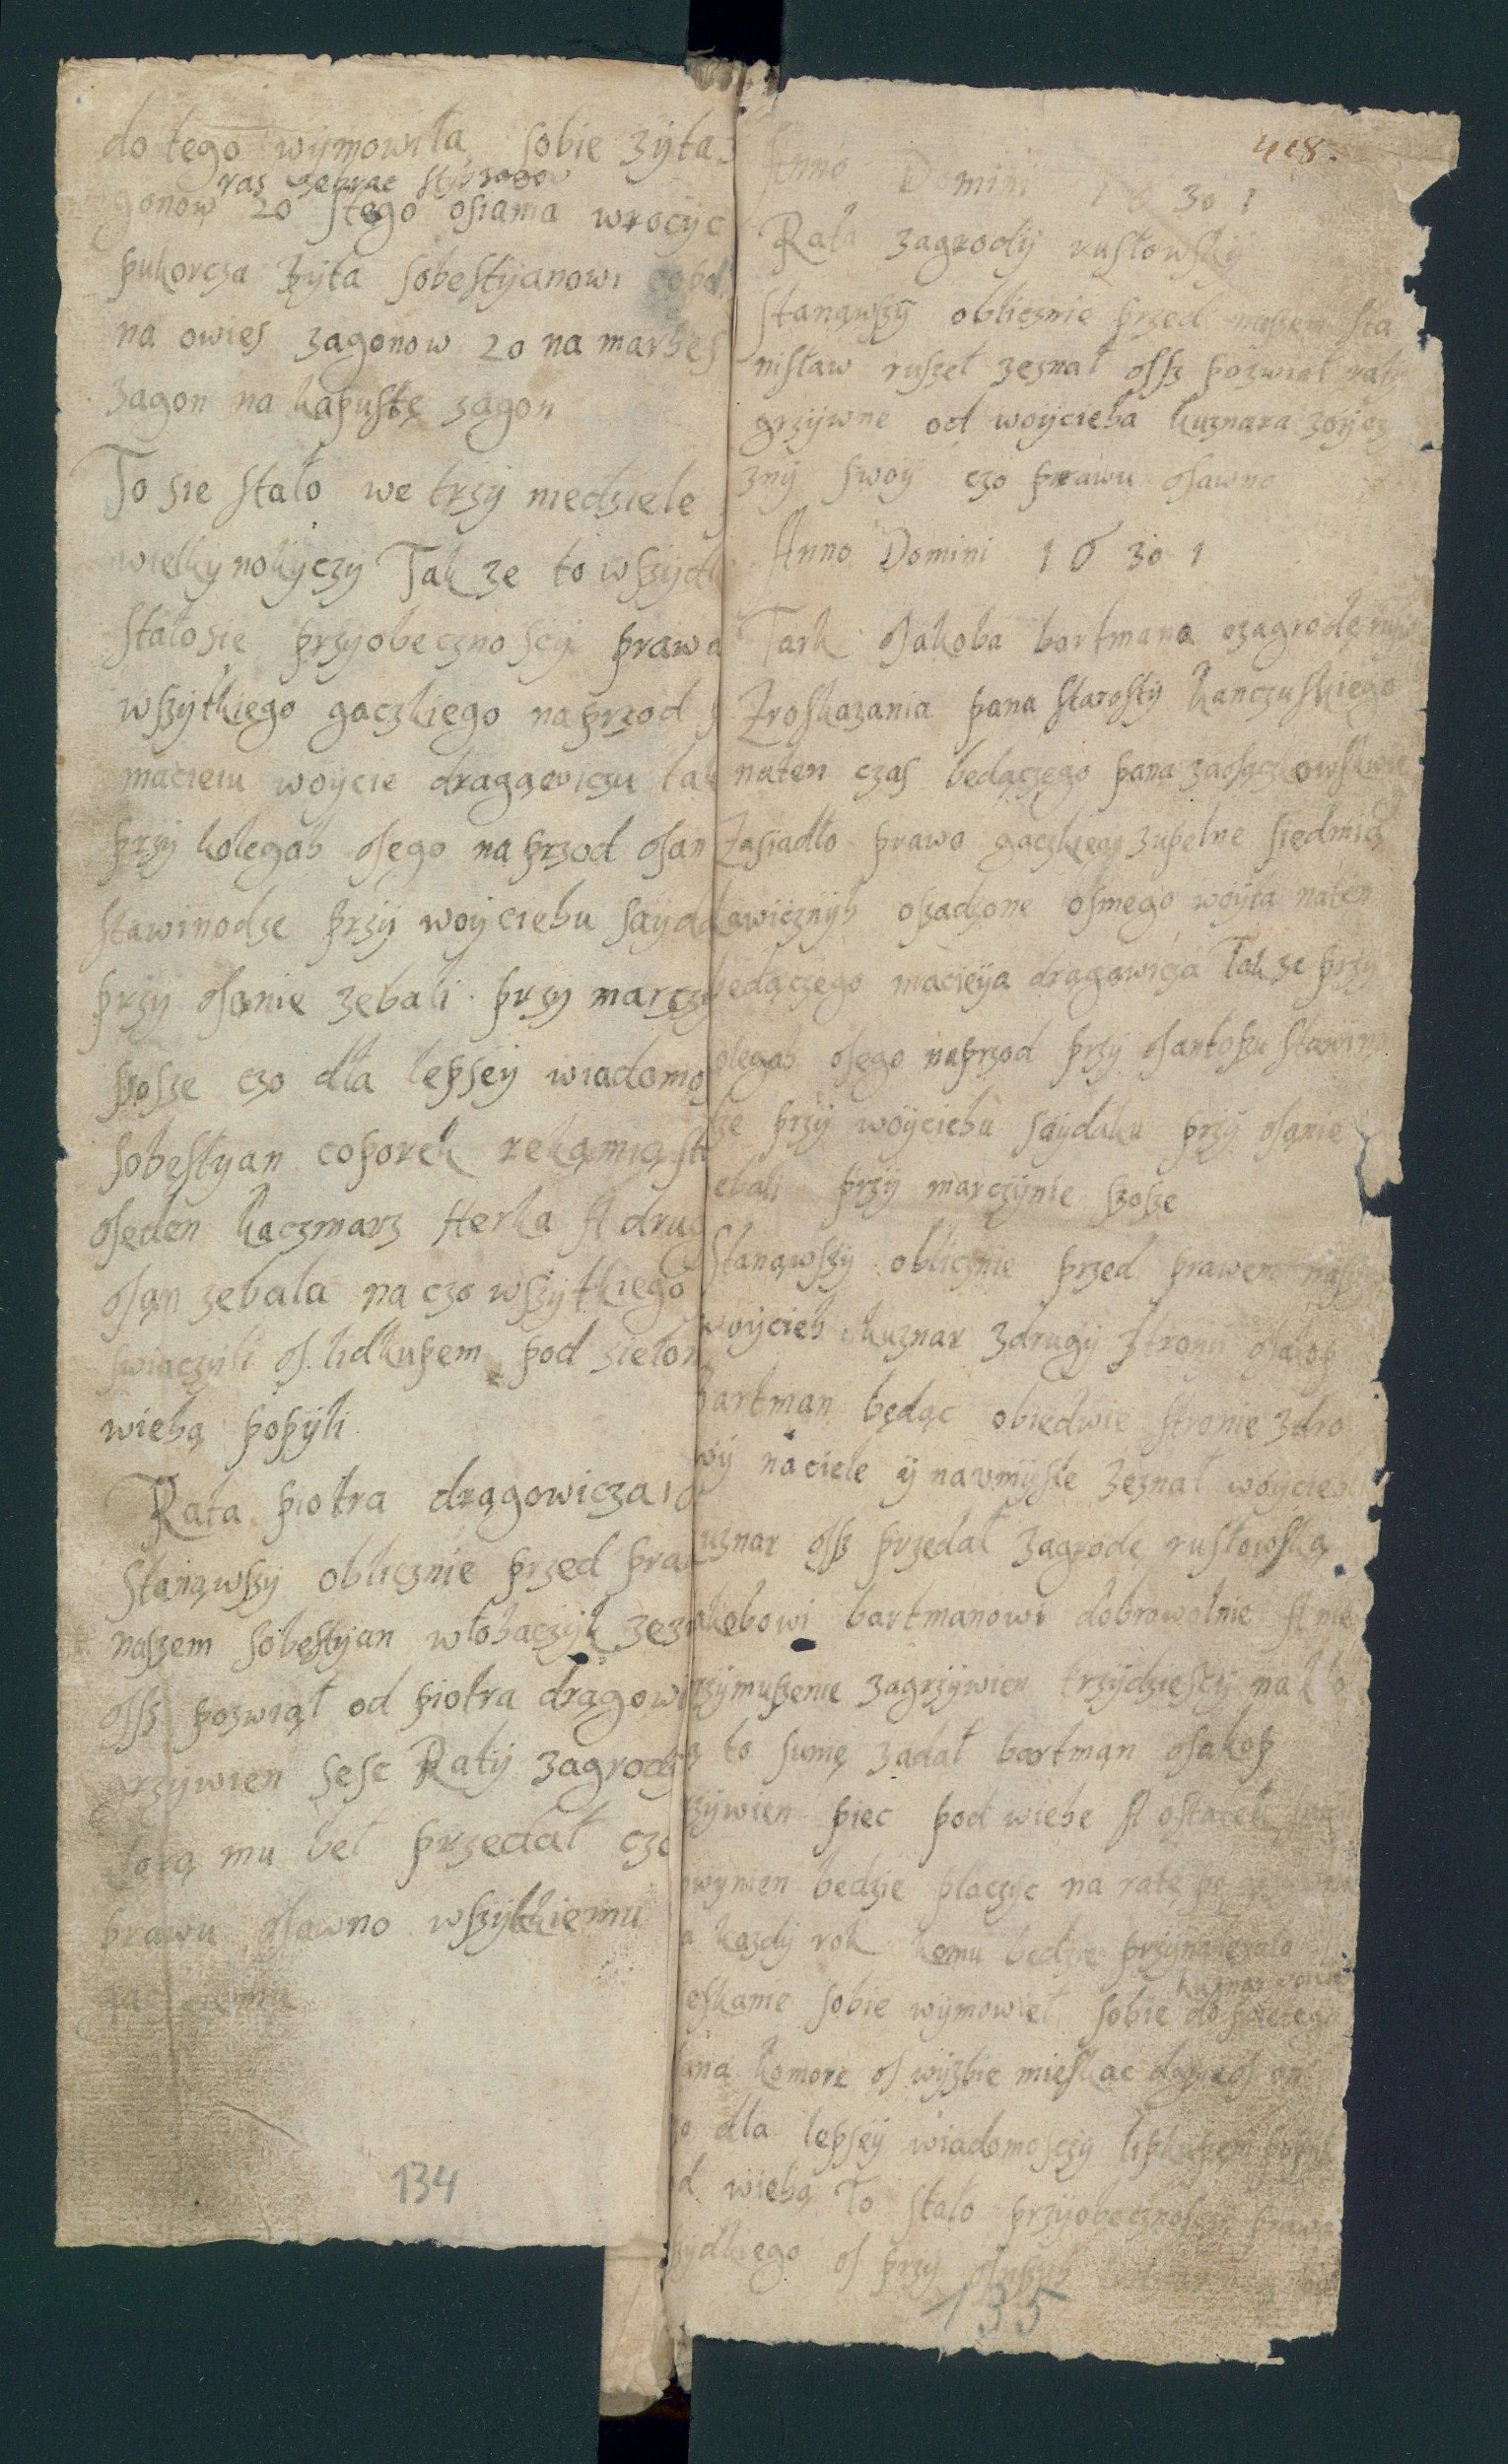 do tego wymowiła sobie zyta
ras zebrac
gonow 20 stego osiama wrocyc
pukorcza zyta sobestyanowi
na owies zagonow 20 na marhes
zagon na kapustę zagon
To sie stało we trzy niedziele
wielkynokyczy Tak ze to wszydk
stałosie przyobecznoscy prawa
wszytkiego gaczkiego naprzod
macieiu woycie dragąewiczu tak
przy kolegah jego naprzod Jan
stawinodze przy woyciehu saydak
przy Janie zebali przy marczy
szosze czo dla lepsey wiadomo
sobestyan coporek rekąmią
Jeden kaczmarz Herka A drug
Jąn zebala na czo wszytkiego
swiaczyli J lidkupem pod zielon
wiehą popyli
Rata piotra drągowicza
Stanąwszy oblicznie przed pra
naszem sobestyan włohaczyk zezn
Jsz pozwiął od piotra drągowi
grzywien sesc Raty zagrody
torą mu beł przedał czo
prawu Jawno wszytkiemu
134
418.
Anno Domini 1 6 30 1
Rata zagrody rusłowsky
Stanąwszy oblicznie przed naszem sta
nisław ruszel zeznał Jsz pozwiął raty
grzywne od woycieha kuznara zoycz
zny swoy czo prawu Jawno
Anno Domini 1 6 30 1
Tark Jakoba bartmana ozagrodę
Zroskazania pana starosty kanczuskiego
naten czas będączego pana
Zasiadło prawo gaczkiey zupelne siedmią
ławicznyh oszadzone osmego woyta naten
będączego macieya drągawicza Tak ze przy
olegah Jego naprzod przy Jantoszu stawino
ze przy woyciehu saydaku przy Janie
ebali przy marczynie szosze
Stanąwszy oblicznie przed prawem
woycieh kuznar zdrugy strony Jakop
bartman będąc obiedwie stronie zdro
wy naciele y navmysle zeznał woycieh
uznar Jsz przedał zagrodę rusłowską
akobowi bartmanowi dobrowolnie A nie
rzymuszenie zagrzywien trzydziescy na
to sumę zadał bartman Jakop
rzywien piec pod wiehe A ostatek
owynien będzie placzyc na ratę po
a kazdy rok komu będzie przynalezało
eskanie sobie wymowieł sobie do swiętego
kuznar woicieh
Jana komorę J wyzbie mieskac
o dla lepsey wiadomosczy lipkupem
d wiehą To stało przyobecznosczy prawa
szydkiego J przy
135